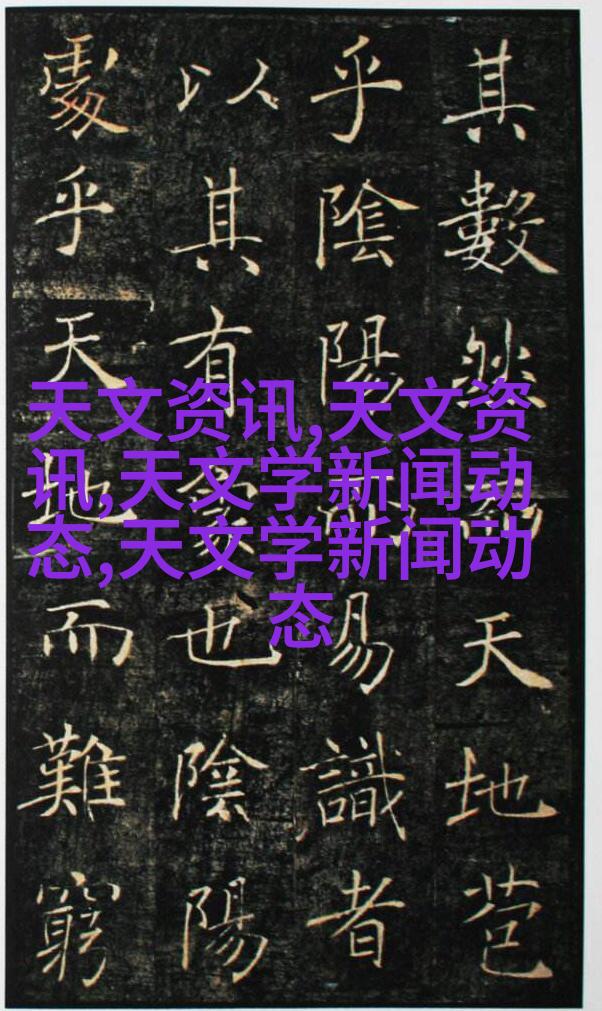 其數然而天地苞
乎陰陽而易識者
以其有象也陰陽
處乎天地而難窮
天文资讯,天文资
讯,天文学新闻动
态,天文学新闻动
态